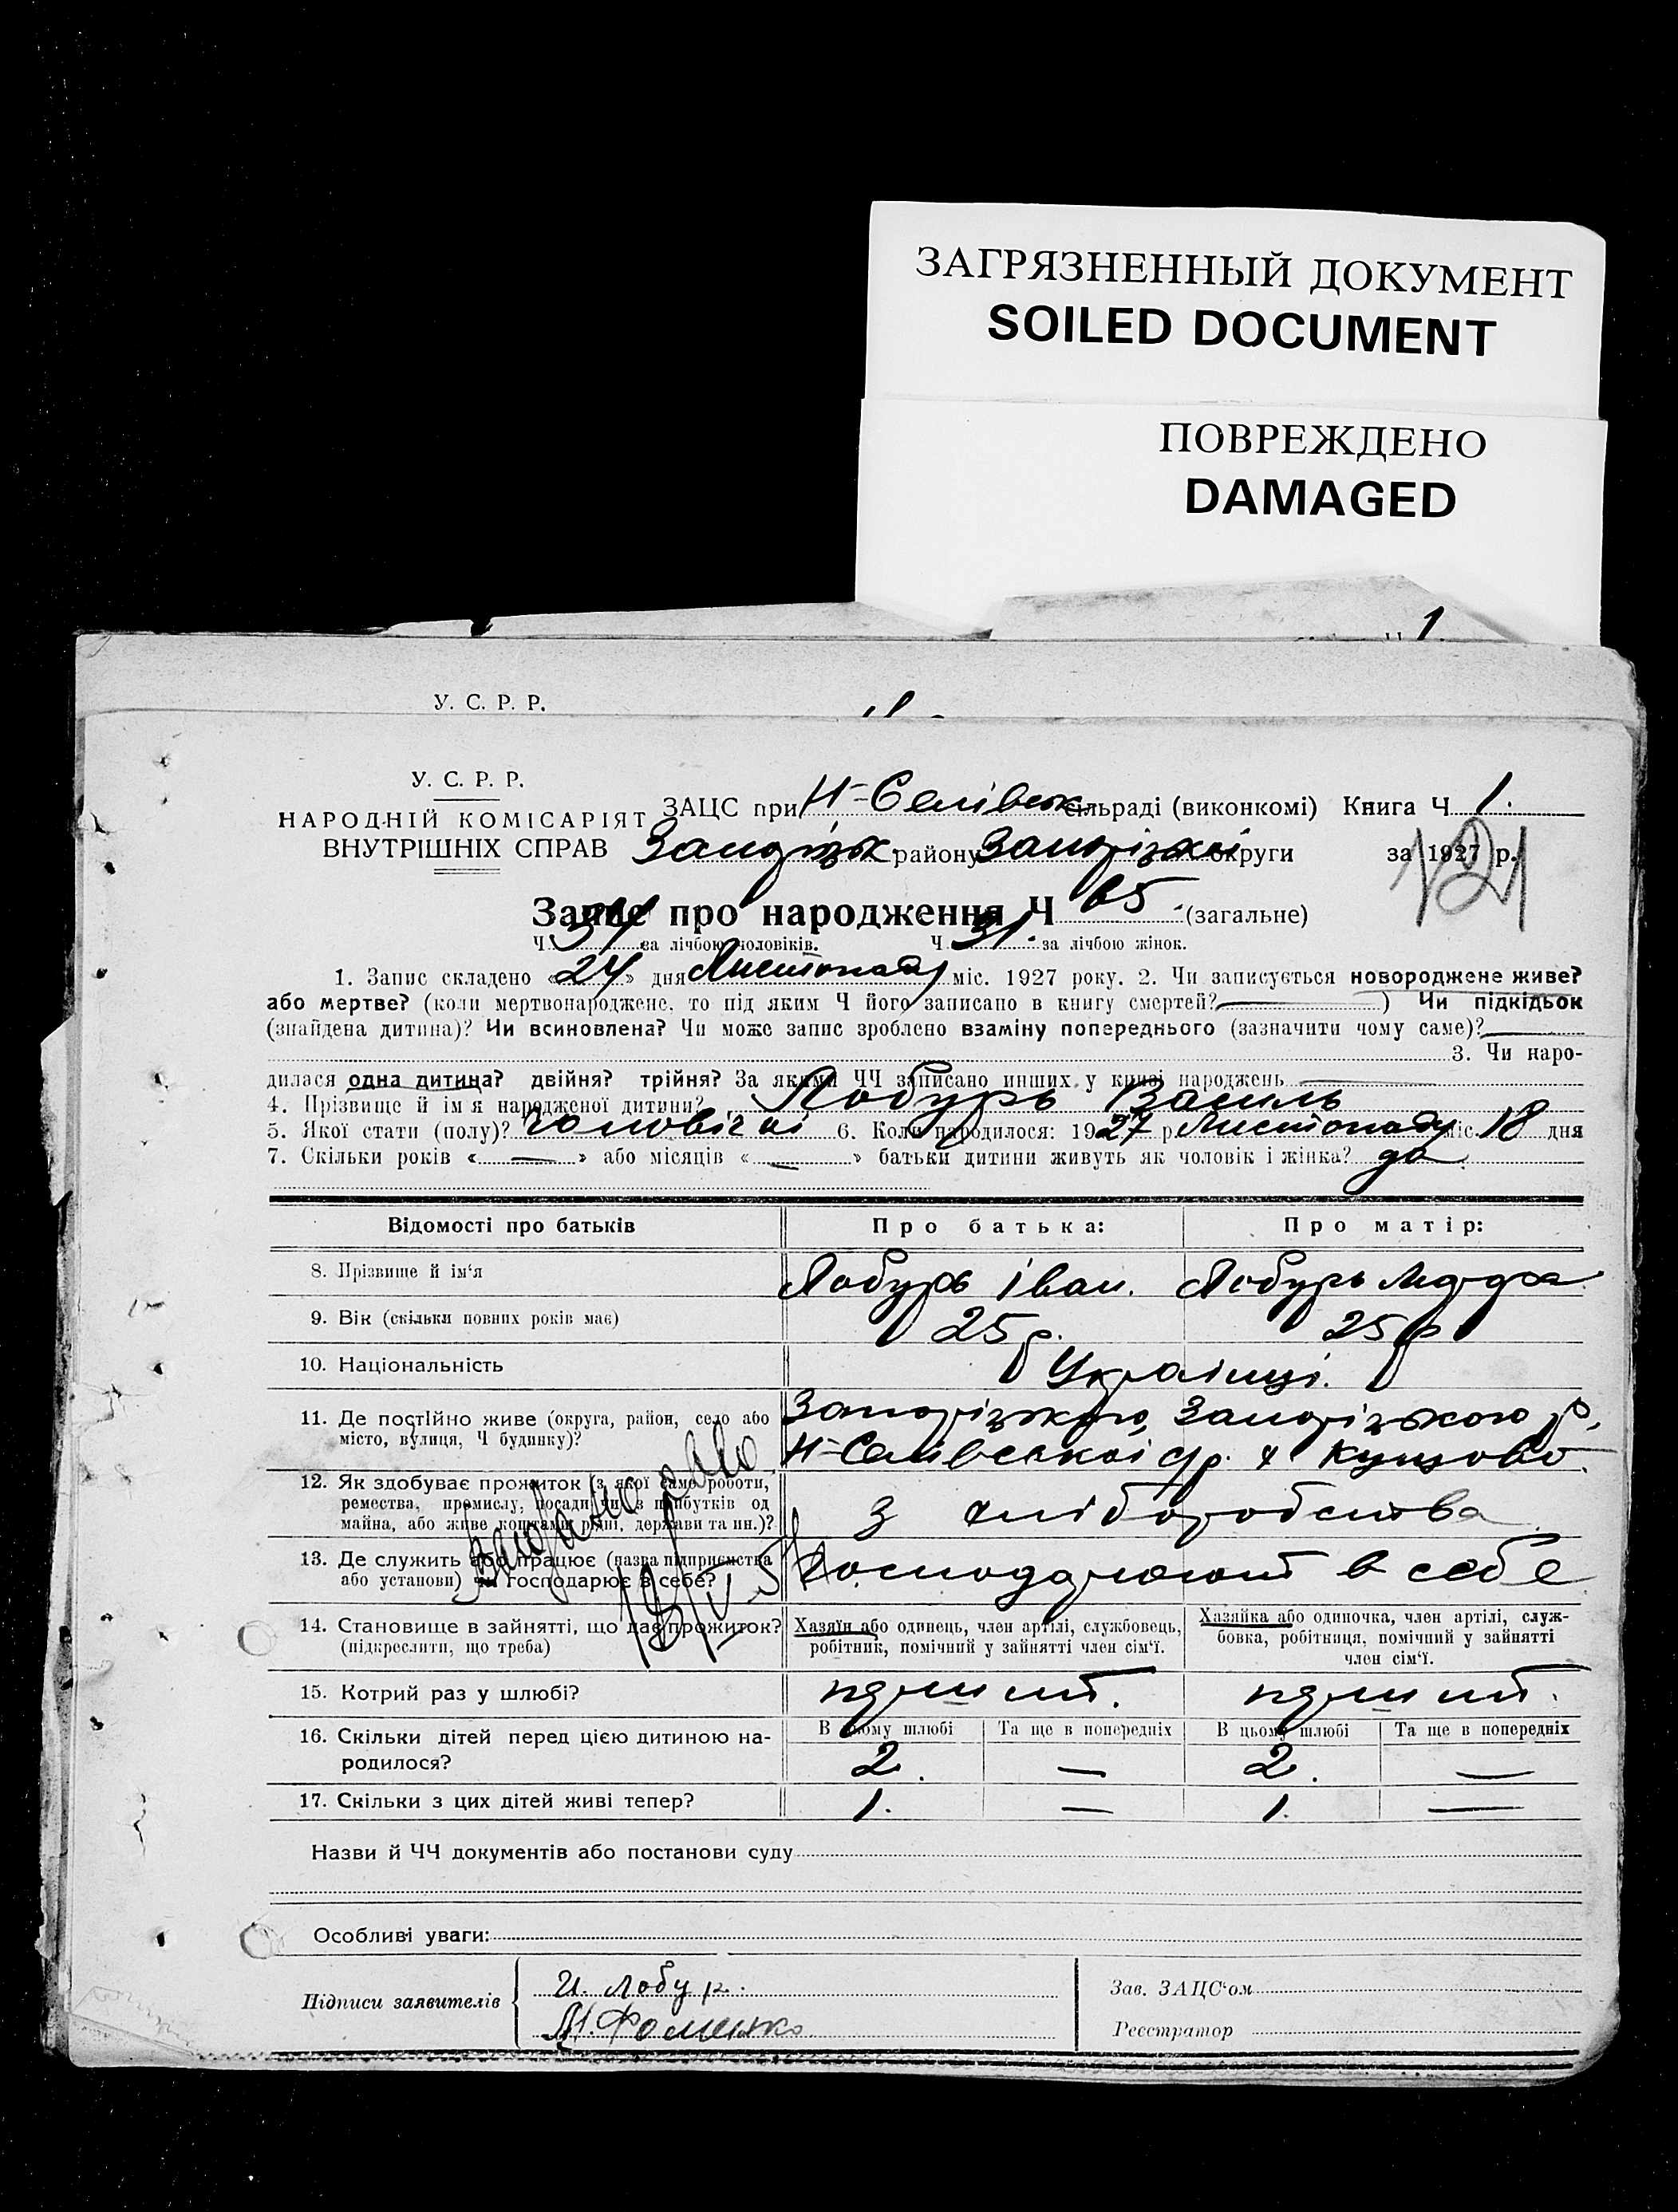 ЗАГРЯЗНЕННЫЙ ДОКУМЕНТ
SOILED DOCUMENT
ПОВРЕЖДЕНО
DAMAGED
1
У. С. Р. Р.
У. С. Р. Р.
НАРОДНІЙ КОМІСАРІЯТ
ВНУТРІШНІХ СПРАВ
ЗАЦС при Н-Селівськ сільраді (виконкомі) Книга Ч 1.
району Запорізької округи за 1927 р.
121
Запис про народження Ч 65 (загальне)
Ч 34 за лічбою чоловіків. Ч 31. за лічбою жінок.
1. Запис складено «24» дня Листопаду міс. 1927 року. 2. Чи записується новороджене живе?
або мертве? (коли мертвонароджене, то під яким Ч його записано в книгу смертей? —) Чи підкідьок
(знайдена дитина)? Чи всиновлена? Чи може запис зроблено взаміну попереднього (зазначити чому саме)? —
3. Чи наро-
дилася одна дитина? двійня? трійня? За якими ЧЧ записано инших у книзі народжень —
4. Прізвище й ім'я народженої дитини? Лобурь Василь
5. Якої стати (полу)? чоловічої 6. Коли народилося: 1927 р Листопаду міс. 18 дня
7. Скільки років «—» або місяців «—» батьки дитини живуть як чоловік і жінка? да
Відомості про батьків Про батька: Про матір:
8. Прізвище й ім'я Лобурь Іван. Лобурь
9. Вік (скільки повних років має) 25 р. 25 р
10. Національність Українці.
11. Де постійно живе (округа, район, село або
місто, вулиця, Ч будинку)?
Запорізького р,
Н-Селівської с/р. х Купцово
12. Як здобуває прожиток (з якої саме роботи,
ремества, промислу, посади чи з прибутків од
майна, або живе коштами рідні, держави та ин.)?
з хліборобства
13. Де служить або працює (назва підприємства
або установи) чи господарює в себе?
господарюют в себе
14. Становище в зайнятті, що дає прожиток?
(підкреслити, що треба)
Хазяїн або одинець, член артілі, службовець,
робітник, помічний у зайнятті член сім'ї.
Хазяйка або одиночка, член артілі, служ-
бовка, робітниця, помічний у зайнятті
член сім'ї.
15. Котрий раз у шлюбі?
16. Скільки дітей перед цією дитиною на-
родилося?
В цьому шлюбі Та ще в попередніх В цьому шлюбі Та ще в попередніх
2. — 2. —
17. Скільки з цих дітей живі тепер? 1. — 1. —
Назви й ЧЧ документів або постанови суду
Особливі уваги:
Підписи заявителів
И. Лобур.
М. Фоменко
Зав. ЗАЦС'ом
Реєстратор